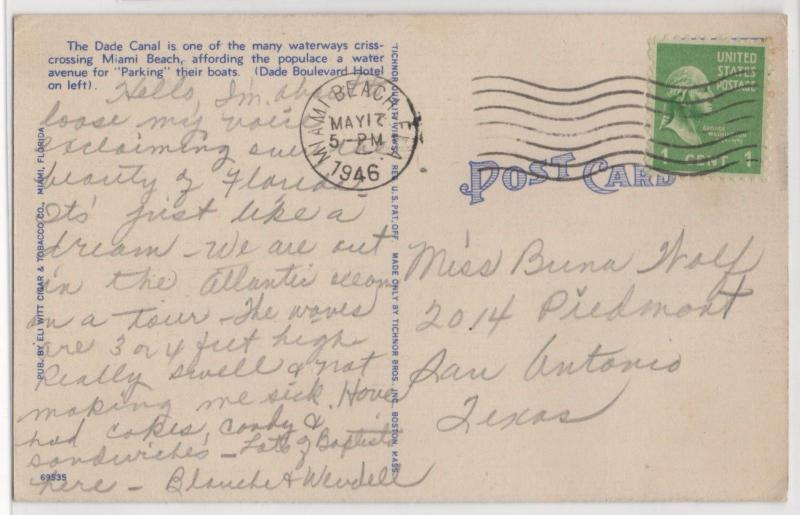 The Dade Canal is one of the many waterways criss-
crossing Miami Beach, affording the populace a water
avenue for "Parking" their boats. (Dade Boulevard Hotel
on left).
Hello, I'm about to
loose my voice
exclaiming over the
beauty of Florida.
Its' just like a
dream - We are out
in the Atlantic ocean
on a tour - The waves
are 3 or 4 feet high -
Really swell & not
making me sick. Have
had cokes, candy &
sandwiches - Lots of Baptists
here - Blanche & Wendell
69535
PUB. BY ELI WITT CIGAR & TOBACCO CO., MIAMI, FLORIDA
TICHNOR QUALITY VIEWS REG. U. S. PAT. OFF. MADE ONLY BY TICHNOR BROS., INC., BOSTON, MASS.
MIAMI BEACH, FLA.
MAY 17
5-PM
1946
UNITED
STATES
POSTAGE
GEORGE
WASHINGTON
1 CENT 1
POST CARD
Miss Buna Wolf
2014 Piedmont
San Antonio
Texas